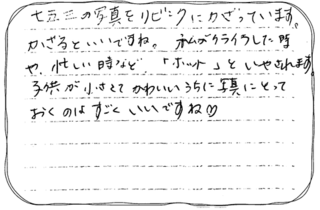 七五三の写真をリビングにかざっています。
かざるといいですね。私がイライラした時
や、忙しい時など、「ホット」といやされます。
子供が小さくてかわいいうちに写真にとって
おくのはすごくいいですね♡